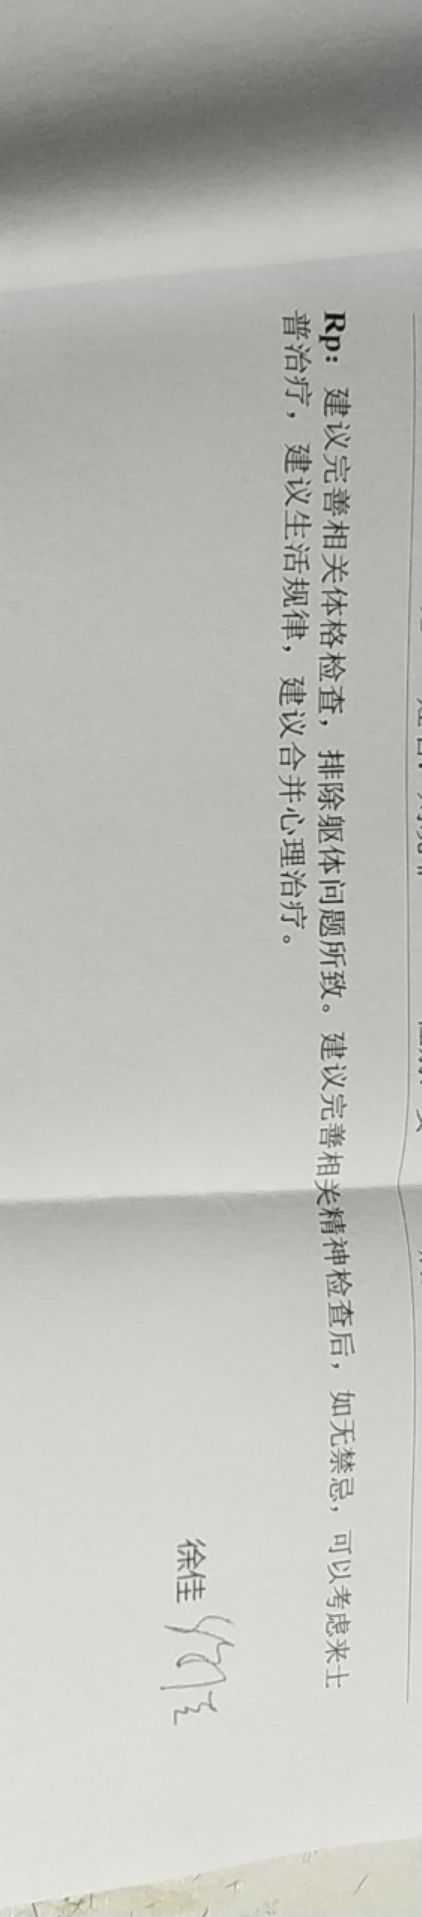 Rp: 建议完善相关体格检查，排除躯体问题所致。建议完善相关精神检查后，如无禁忌，可以考虑来士
普治疗，建议生活规律，建议合并心理治疗。
徐佳